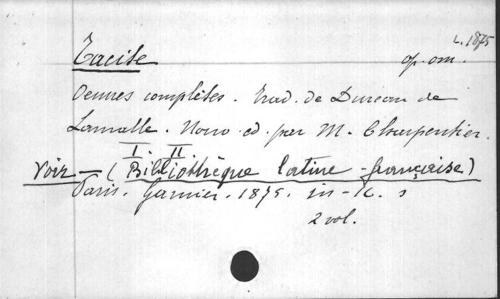 L. 1875
Tacite
op. om.
Oeuvres complètes. Trad. de Dureau de
Lamalle. Nouv. ed. par M. Charpentier.
I. II
Voir — (Bibliothèque latine-française)
Paris. Garnier. 1875. in-
2 vol.